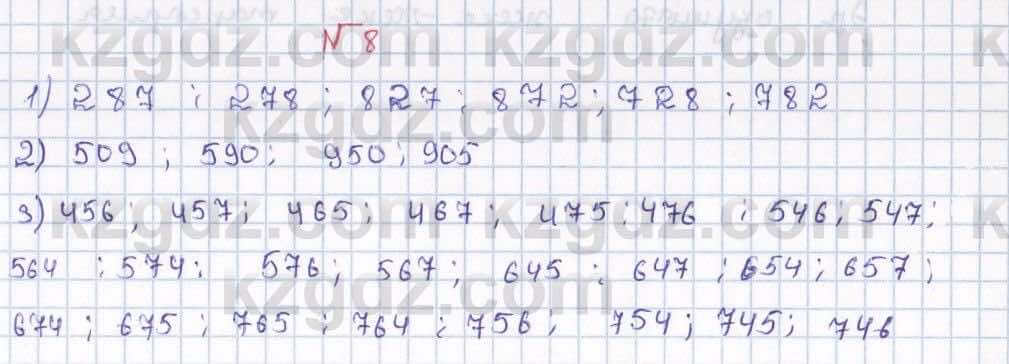 №8
1) 287 ; 278 ; 827 ; 872 ; 728 ; 782
2) 509 ; 590 ; 950 ; 905
3) 456 ; 457 ; 465 ; 467 ; 475 ; 476 ; 546 ; 547 ;
564 ; 574 ; 576 ; 567 ; 645 ; 647 ; 654 ; 657 ;
674 ; 675 ; 765 ; 764 ; 756 ; 754 ; 745 ; 746
kzgdz.com
kzgdz.com
kzgdz.com
kzgdz.com
kzgdz.com
kzgdz.com